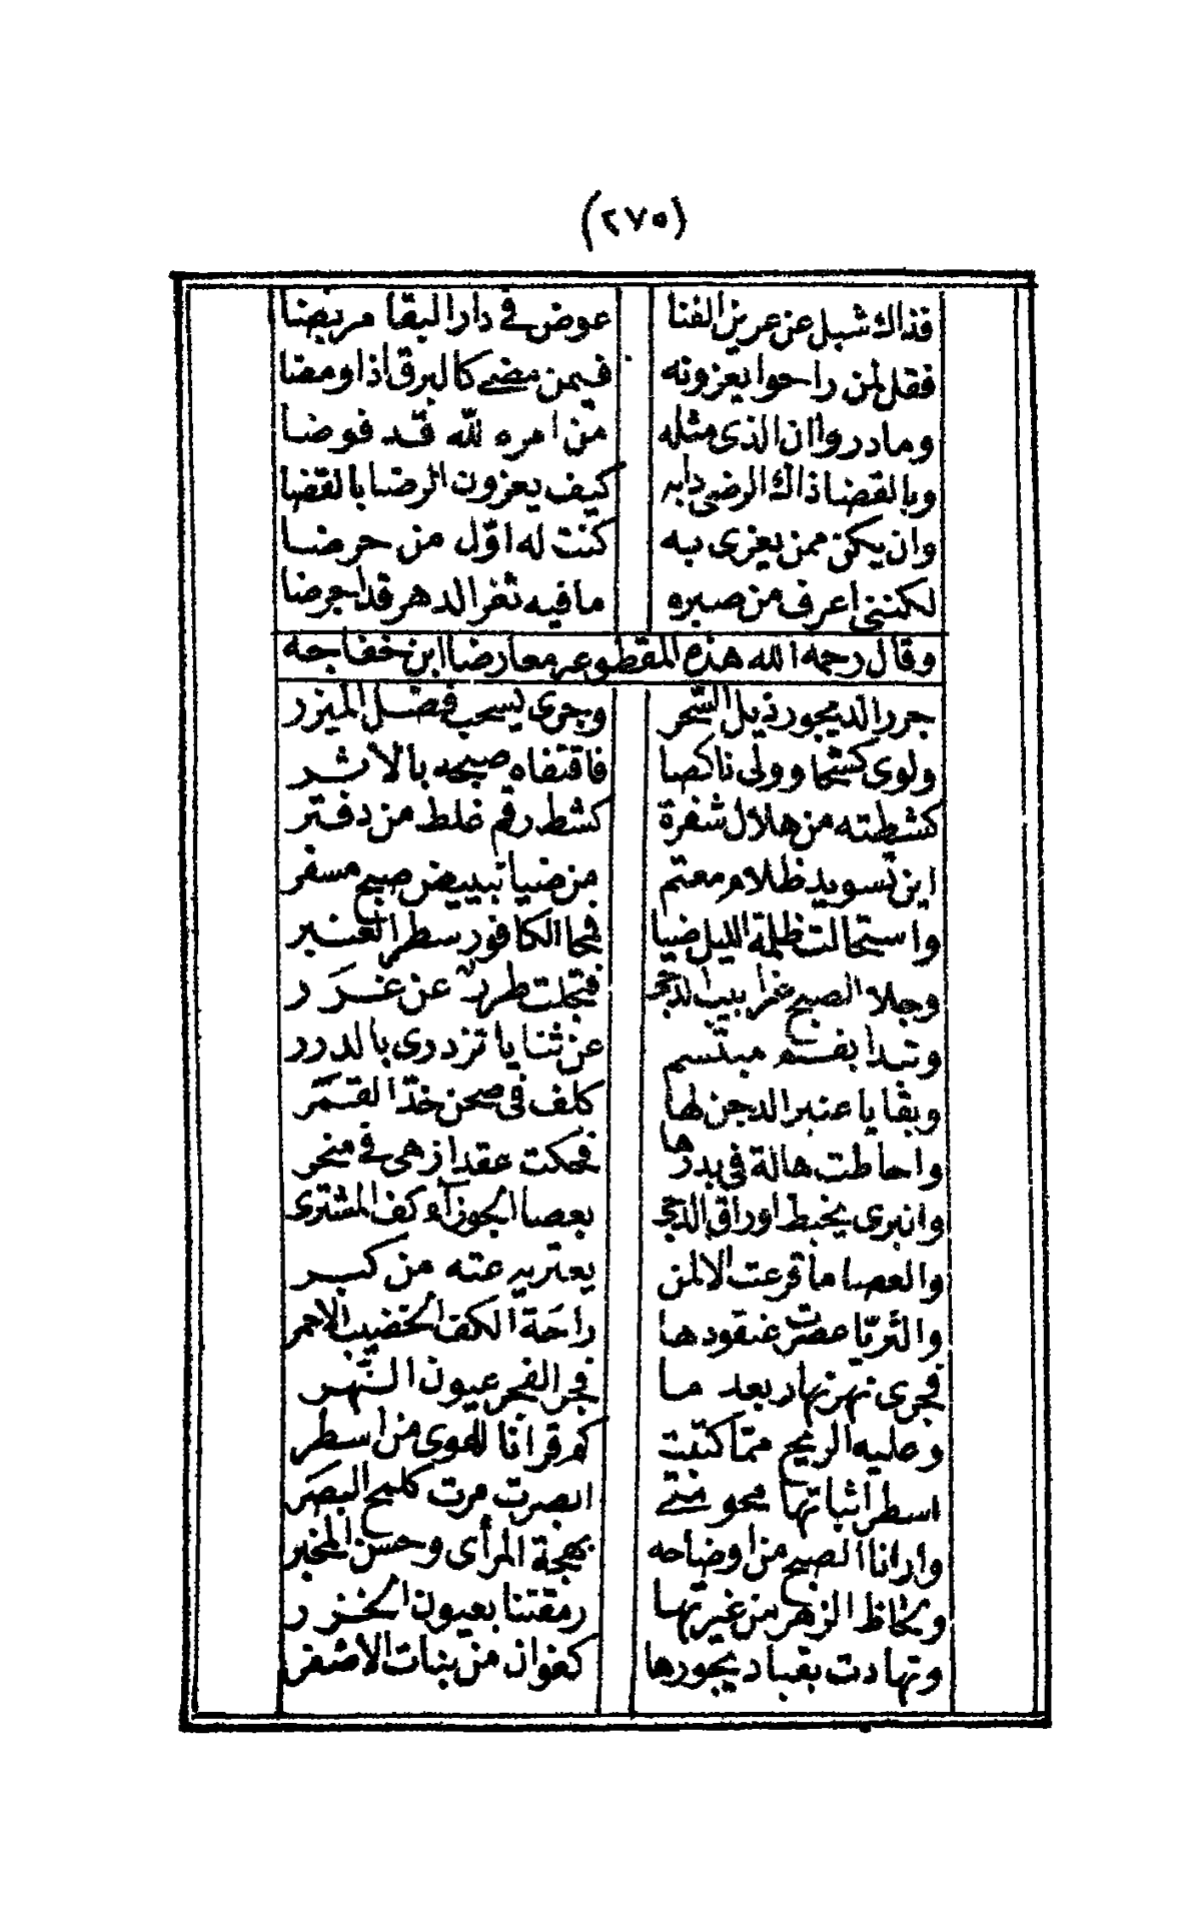 (٢٧٥)
فذاك شبل عن عرين الفنا عوض في دار البقا مربضا
فقل لمن راحوا يعزونه فيمن مضى كالبرق اذا ومضا
وما دروا ان الذى مثله من امره لله قد فوضا
وبالقضا ذاك الرضى دابه كيف يعزون الرضا بالقضا
وان يكن ممن يعزى به كنت له اوّل من حرضا
لكننى اعرف من صبره ما فيه ثغر الدهر قد اجرضا
وقال رحمه الله هذه المقطوعه معارضا ابن خفاجه
جرر الديجور ذيل السَّحر وجرى يسحب فضل الميزر
ولوى كشحا وولى ناكصا فاقتفاه صبحه بالأثر
كشطته من هلال شفرة كشط رقم غلط من دفتر
اين تسويد ظلام معتم من ضيا تبييض صبح مسفر
واستحالت ظلمة الليل ضيا فمحا الكافور سطر العنبر
وجلا الصبح غرابيب الدجى فتجلت طرر عن غرر
وتبدا بفم مبتسم عن ثنايا تزدرى بالدرر
وبقايا عنبر الدجن لها كلف فى صحن خدّ القمر
واحاطت هالة فى بدرها فحكت عقدا زهى في منحر
وانبرى يخبط اوراق الدجى بعصا الجوزآء كف المشترى
والعصا ما قرعت الا لمن يعتريه عته من كبر
والثريّا عصرت عنقودها راحة الكف الخضيب الاحمر
فجرى نهر نهار بعد ما فجر الفجر عيون النَّهر
وعليه الريح ممّا كتبت كم قرانا للهوى من اسطر
اسطر اثباتها محو متى ابصرت مرت كلمح البصر
وارانا الصبح من اوضاحه بهجة المرأى وحسن المخبر
ولحاظ الزهر من غيرتها رمقتنا بعيون الخزر
وتهادت بقباد يجورها كغوان من بنات الاصفر